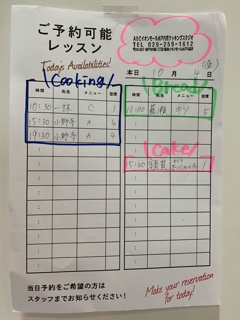 ご予約可能
レッスン
Today's Availabilities!
ABCイオンモール水戸内原クッキングスタジオ
TEL 029-259-1612
本日 10月 4日 (金)
Cooking
Bread
時間 先生 メニュー 空席
10:30 C 1
15:30 小野寺 A 4
19:30 小野寺 A 4
時間 先生 メニュー 空席
13:00 5
Cake
時間 先生 メニュー 空席
15:30 1
当日予約をご希望の方は
スタッフまでお知らせください!
Make your reservation
for today!